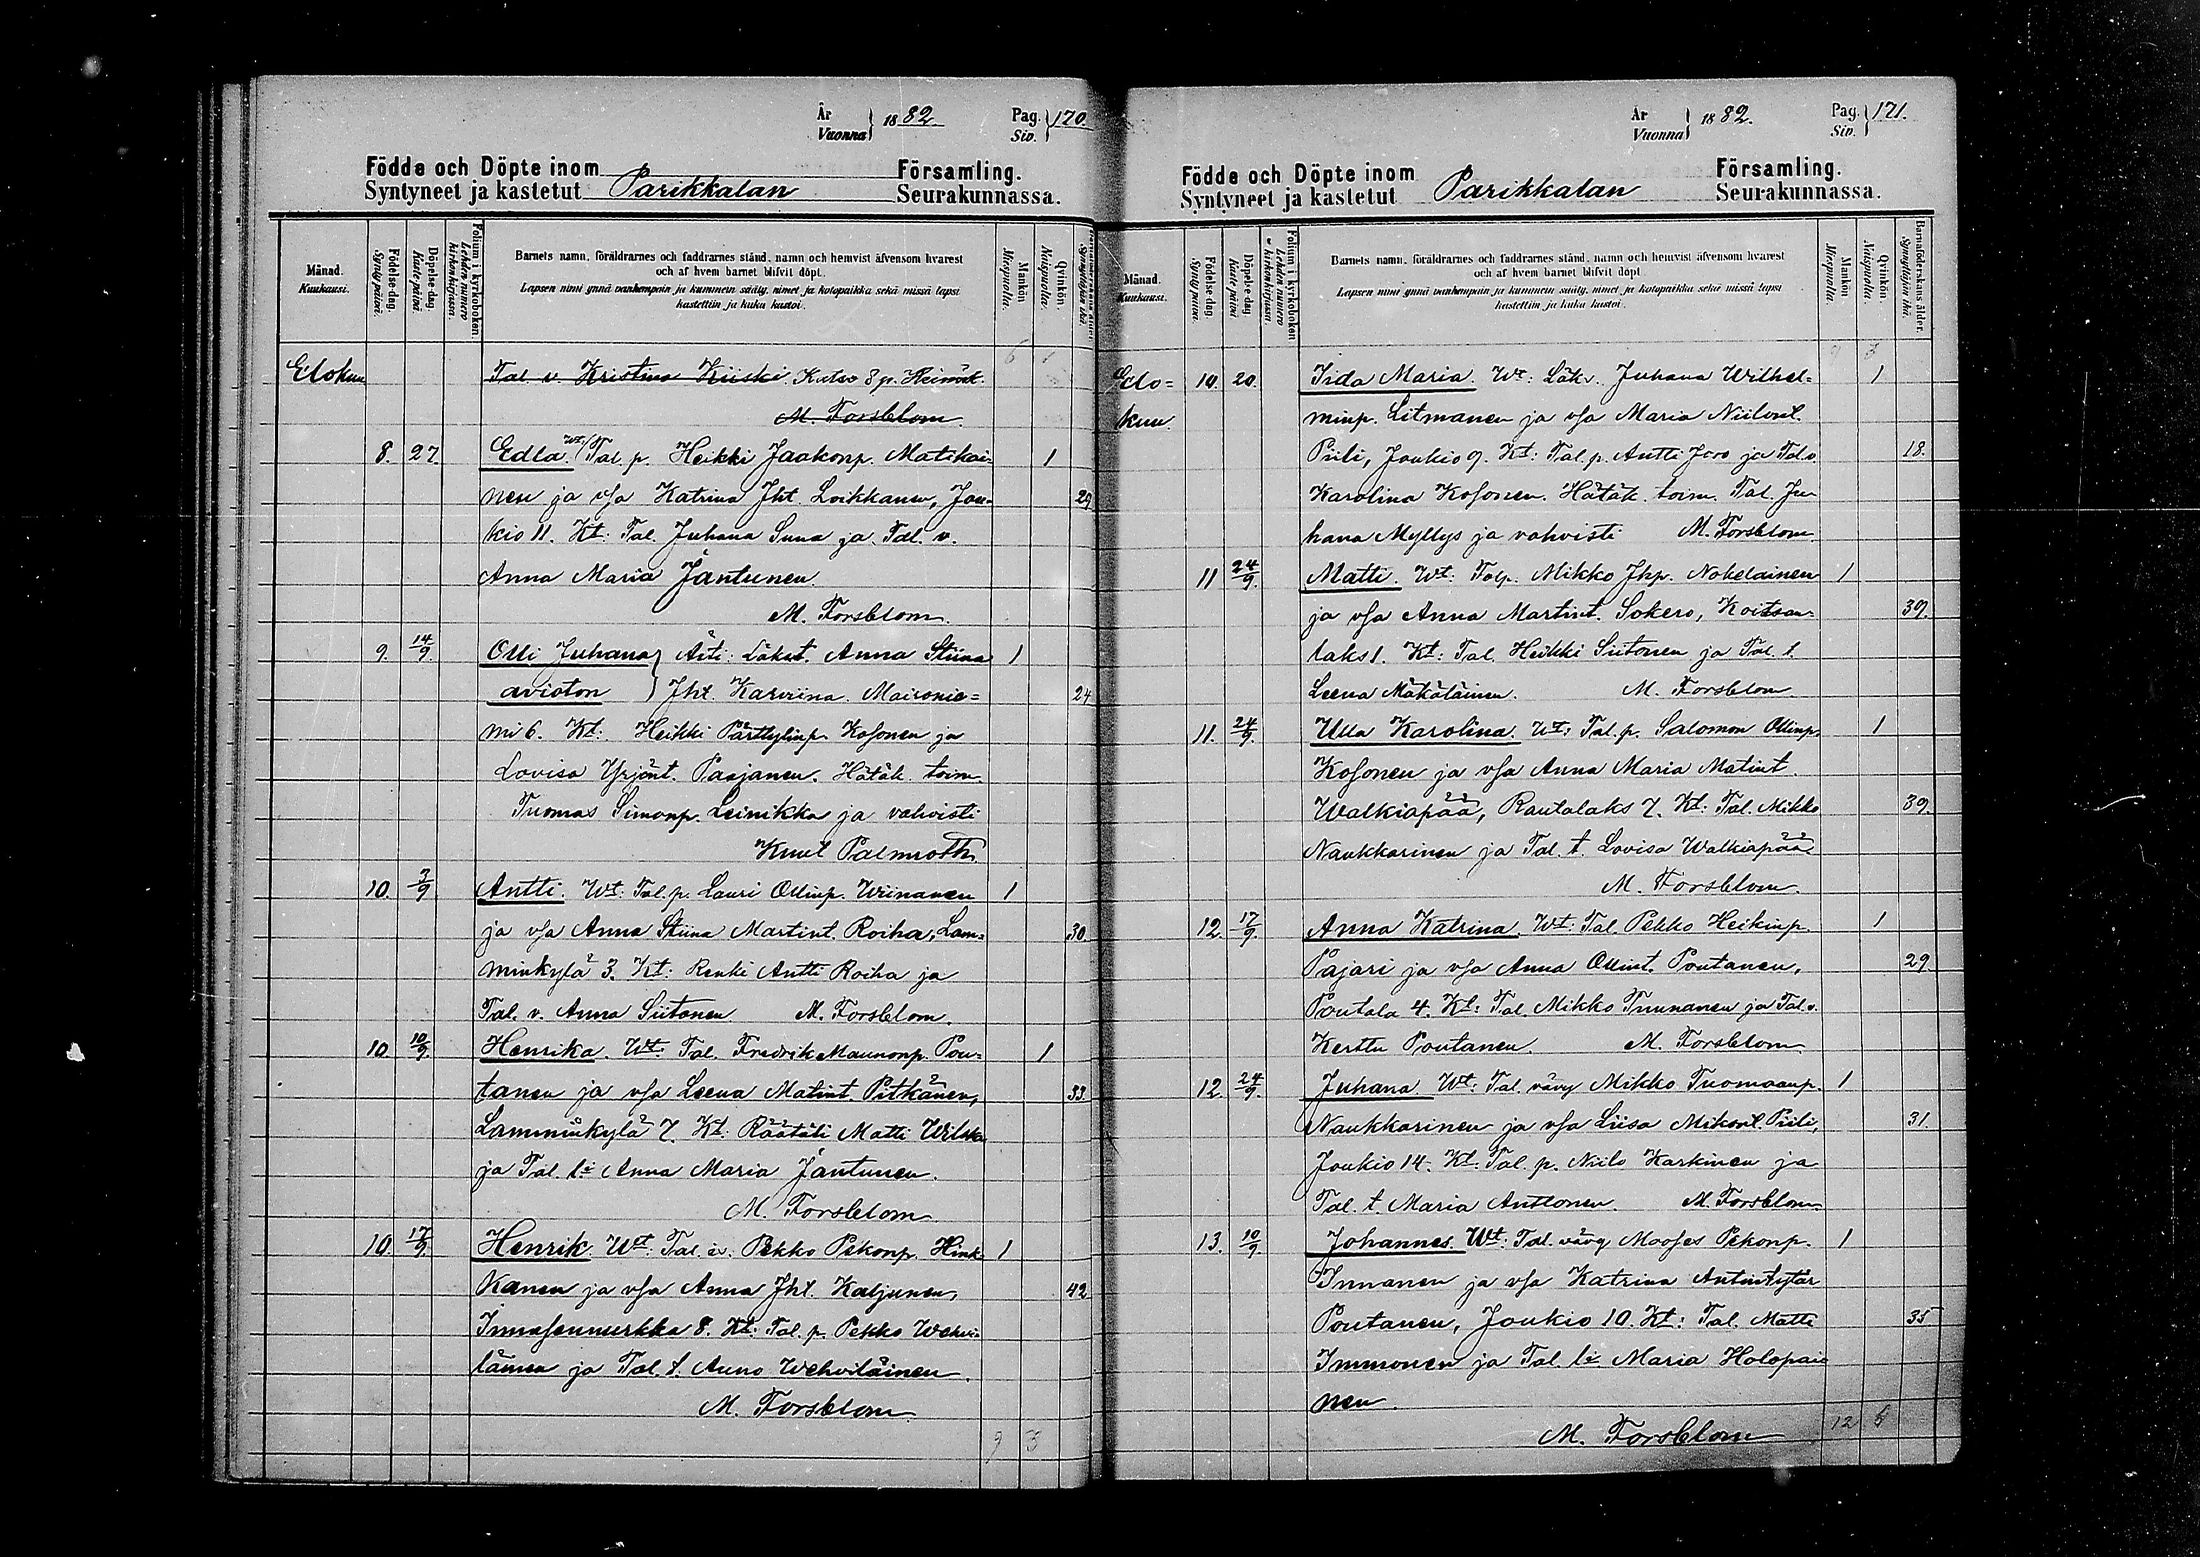 År
Vuonna } 1882. Pag. Siv. } 170.
Födde och Döpte inom Församling.
Syntyneet ja kastetut Parikkalan Seurakunnassa.
Månad. Kuukausi.
Födelse-dag. Synty päivä.
Döpelse-dag. Kaste päivä.
Folium i kyrkoboken. Lehden numero kirkonkirjassa.
Barnets namn, föräldrarnes och faddrarnes stånd, namn och hemvist äfvensom hvarest
och af hvem barnet blifvit döpt.
Lapsen nimi ynnä vanhempain ja kummein sääty, nimet ja kotopaikka sekä missä lapsi
kastettiin ja kuka kastoi.
Mankön. Miespuolia.
Qvinkön. Naispuolia.
Elokuu Tal v. Kristina Kiiski. Katso 8 p. Heinäk.
M. Forsblom.
8. 27. Edla. Wt: Tal p. Heikki Jaakonp. Matikai- 1
nen ja vsa Katrina Jht. Loikkanen, Jou- 29
kio 11. Kt: Tal. Juhana Suna ja Tal. v.
Anna Maria Jäntunen.
M. Forsblom.
9. 14/9. Olli Juhana } Äiti: Läkst. Anna Stiina 1
avioton } Jht. Karviina. Maironie- 24
mi 6. Kt: Heikki Pärttylinp. Kosonen ja
Lovisa Yrjönt. Paajanen. Hätäk. toim.
Tuomas Simonp. Leinikka ja vahvisti
Knut Palmroth.
10. 3/9 Antti. Wt: Tal. p. Lauri Ollinp. Wiinanen 1
ja vsa Anna Stiina Martint. Roiha, Lam- 30.
minkylä 3. Kt: Renki Antti Roiha ja
Tal. v. Anna Siitonen M. Forsblom.
10. 10/9. Henrika. Wt: Tal. Fredrik Maunonp. Pou- 1
tanen ja vsa Leena Matint. Pitkänen, 33.
Lamminkylä 7. Kt: Räätäli Matti Wilska
ja Tal. ls Anna Maria Jäntunen.
M. Forsblom
10. 17/9. Henrik Wt: Tal. v. Pekko Pekonp. Hink- 1
kanen ja vsa Anna Jht. Kaljunen, 42
Innasennurkka 8. Kt: Tal. p. Pekko Wehvi-
läinen ja Tal. t. Anna Wehviläinen.
M. Forsblom.
9 3
År
Vuonna } 1882. Pag. Siv. } 171.
Födde och Döpte inom Församling.
Syntyneet ja kastetut Parikkalan Seurakunnassa.
Månad. Kuukausi.
Födelse dag. Synty päivä.
Döpelse dag. Kaste päivä.
Folium i kyrkoboken. Lehden numero kirkonkirjassa.
Barnets namn, föräldrarnes och faddrarnes stånd, namn och hemvist äfvensom hvarest
och af hvem barnet blifvit döpt.
Lapsen nimi ynnä vanhempain ja kummein sääty, nimet ja kotopaikka sekä missä lapsi
kastettiin ja kuka kastoi.
Mankön. Miespuolia.
Qvinkön. Naispuolia.
Barnaföderskans ålder. Synnyttäjän ikä.
Elo- 10. 20. Iida Maria. Wt: Läk v. Juhana Wilhel- 1
kuu. minp. Litmanen ja vsa Maria Niilont.
Piili, Joukio 9. Kt: Tal. p. Antti Jaro ja Tal v 18.
Karolina Kosonen. Hätäk. toim. Tal. Ju-
hana Myllys ja vahvisti M. Forsblom.
11 24/9. Matti. Wt: Tal p. Mikko Jhp. Nokelainen 1
ja vsa Anna Martint. Sokero, Koitsan- 39.
laks 1. Kt: Tal. Heikki Siitonen ja Tal. t.
Leena Mäkäläinen. M. Forsblom.
11. 24/9. Ulla Karolina. Wt: Tal. p. Salomon Ollinp. 1
Kosonen ja vsa Anna Maria Matint.
Walkiapää, Rautalaks 7. Kt: Tal. Mikko 39.
Naukkarinen ja Tal. t. Lovisa Walkiapää
M. Forsblom.
12. 17/9. Anna Katrina. Wt: Tal. Pekko Heikinp. 1
Pajari ja vsa Anna Ollint. Poutanen, 29
Poutala 4. Kt: Tal. Mikko Tuunanen ja Tal. v.
Kerttu Poutanen. M. Forsblom.
12. 24/9. Juhana. Wt: Tal. vävy Mikko Tuomaanp. 1
Naukkarinen ja vsa Liisa Mikont. Piili, 31
Joukio 14. Kt: Tal. p. Niilo Karkinen ja
Tal. t Maria Anttonen. M. Forsblom
13. 10/9. Johannes. Wt: Tal. vävy Mooses Pekonp. 1
Innanen ja vsa Katrina Antintytär
Poutanen, Joukio 10. Kt: Tal. Matti 35
Immonen ja Tal. ls Maria Holopai-
nen.
M. Forsblom 12 5